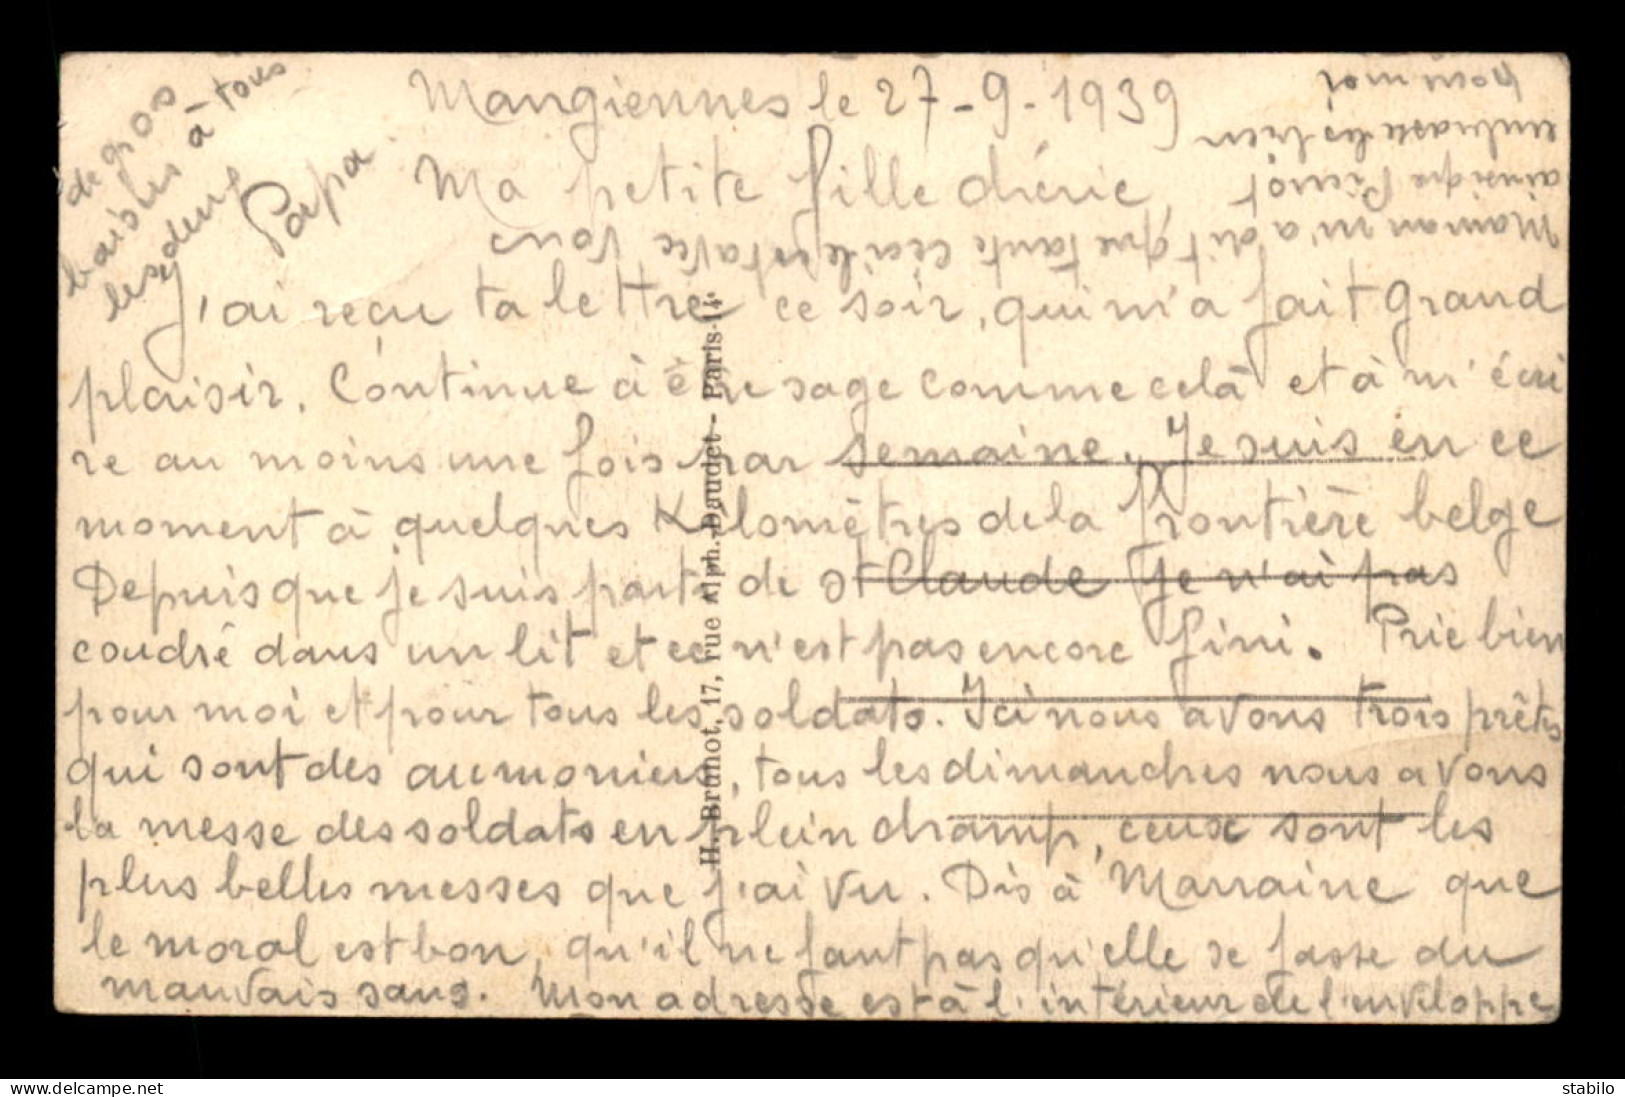 Mangiennes le 27-9-1939
Ma petite fille chérie
J'ai reçu ta lettre ce soir, qui m'a fait grand
plaisir. Continue à être sage comme celà et à m'écri
re au moins une fois par semaine. Je suis en ce
moment à quelques Kilomètres de la frontière belge
Depuis que je suis parti de St Claude je n'ai pas
couché dans un lit et ce n'est pas encore fini. Prie bien
pour moi et pour tous les soldats. Ici nous avons trois prêtres
qui sont des aumoniers, tous les dimanches nous avons
la messe des soldats en plein champ, ceux sont les
plus belles messes que j'ai vu. Dis à Marraine que
le moral est bon, qu'il ne faut pas qu'elle se fasse du
mauvais sang. Mon adresse est à l'intérieur de l'enveloppe
Maman m'a dit que tante Cécile est avec vous
ainsi que Pierrot
embrasse les bien
pour moi
de gros
baisers à tous
les deux
Papa.
H. Brunot, 17, rue Alph.-Daudet - Paris-14e
stabilo
delcampe.net